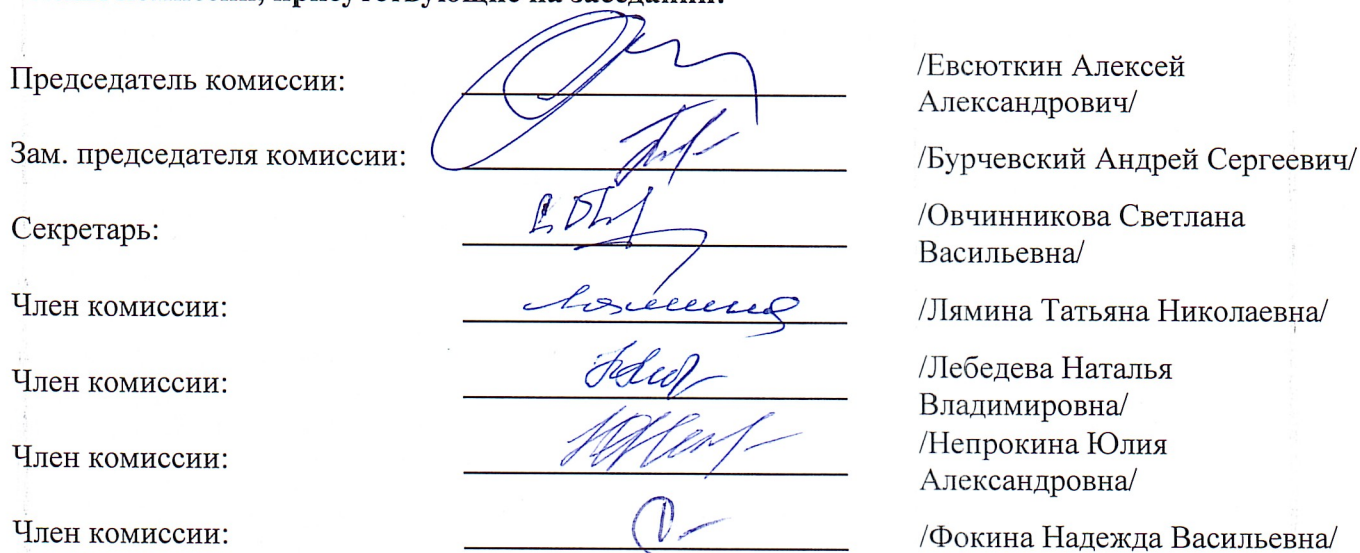 присутствующие на заседании:
Председатель комиссии: /Евсюткин Алексей
Александрович/
Зам. председателя комиссии: /Бурчевский Андрей Сергеевич/
Секретарь: /Овчинникова Светлана
Васильевна/
Член комиссии: /Лямина Татьяна Николаевна/
Член комиссии: /Лебедева Наталья
Владимировна/
Член комиссии: /Непрокина Юлия
Александровна/
Член комиссии: /Фокина Надежда Васильевна/